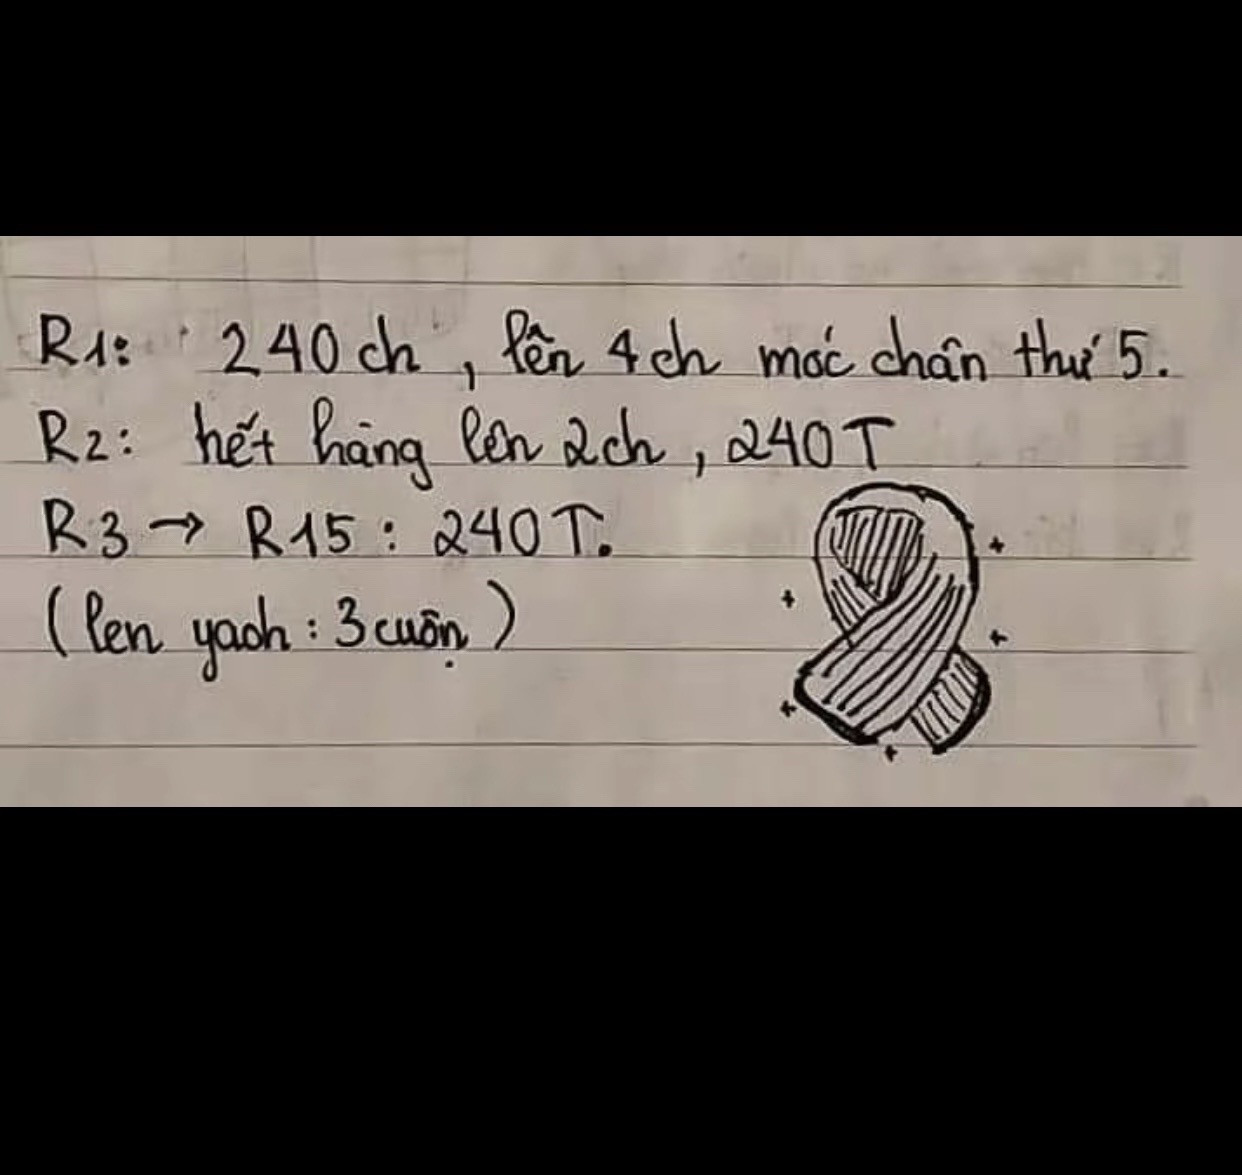 R1: 240 ch, lên 4 ch móc chân thứ 5.
R2: hết hàng lên 2ch, 240T
R3 → R15: 240T.
(len yach: 3 cuộn)